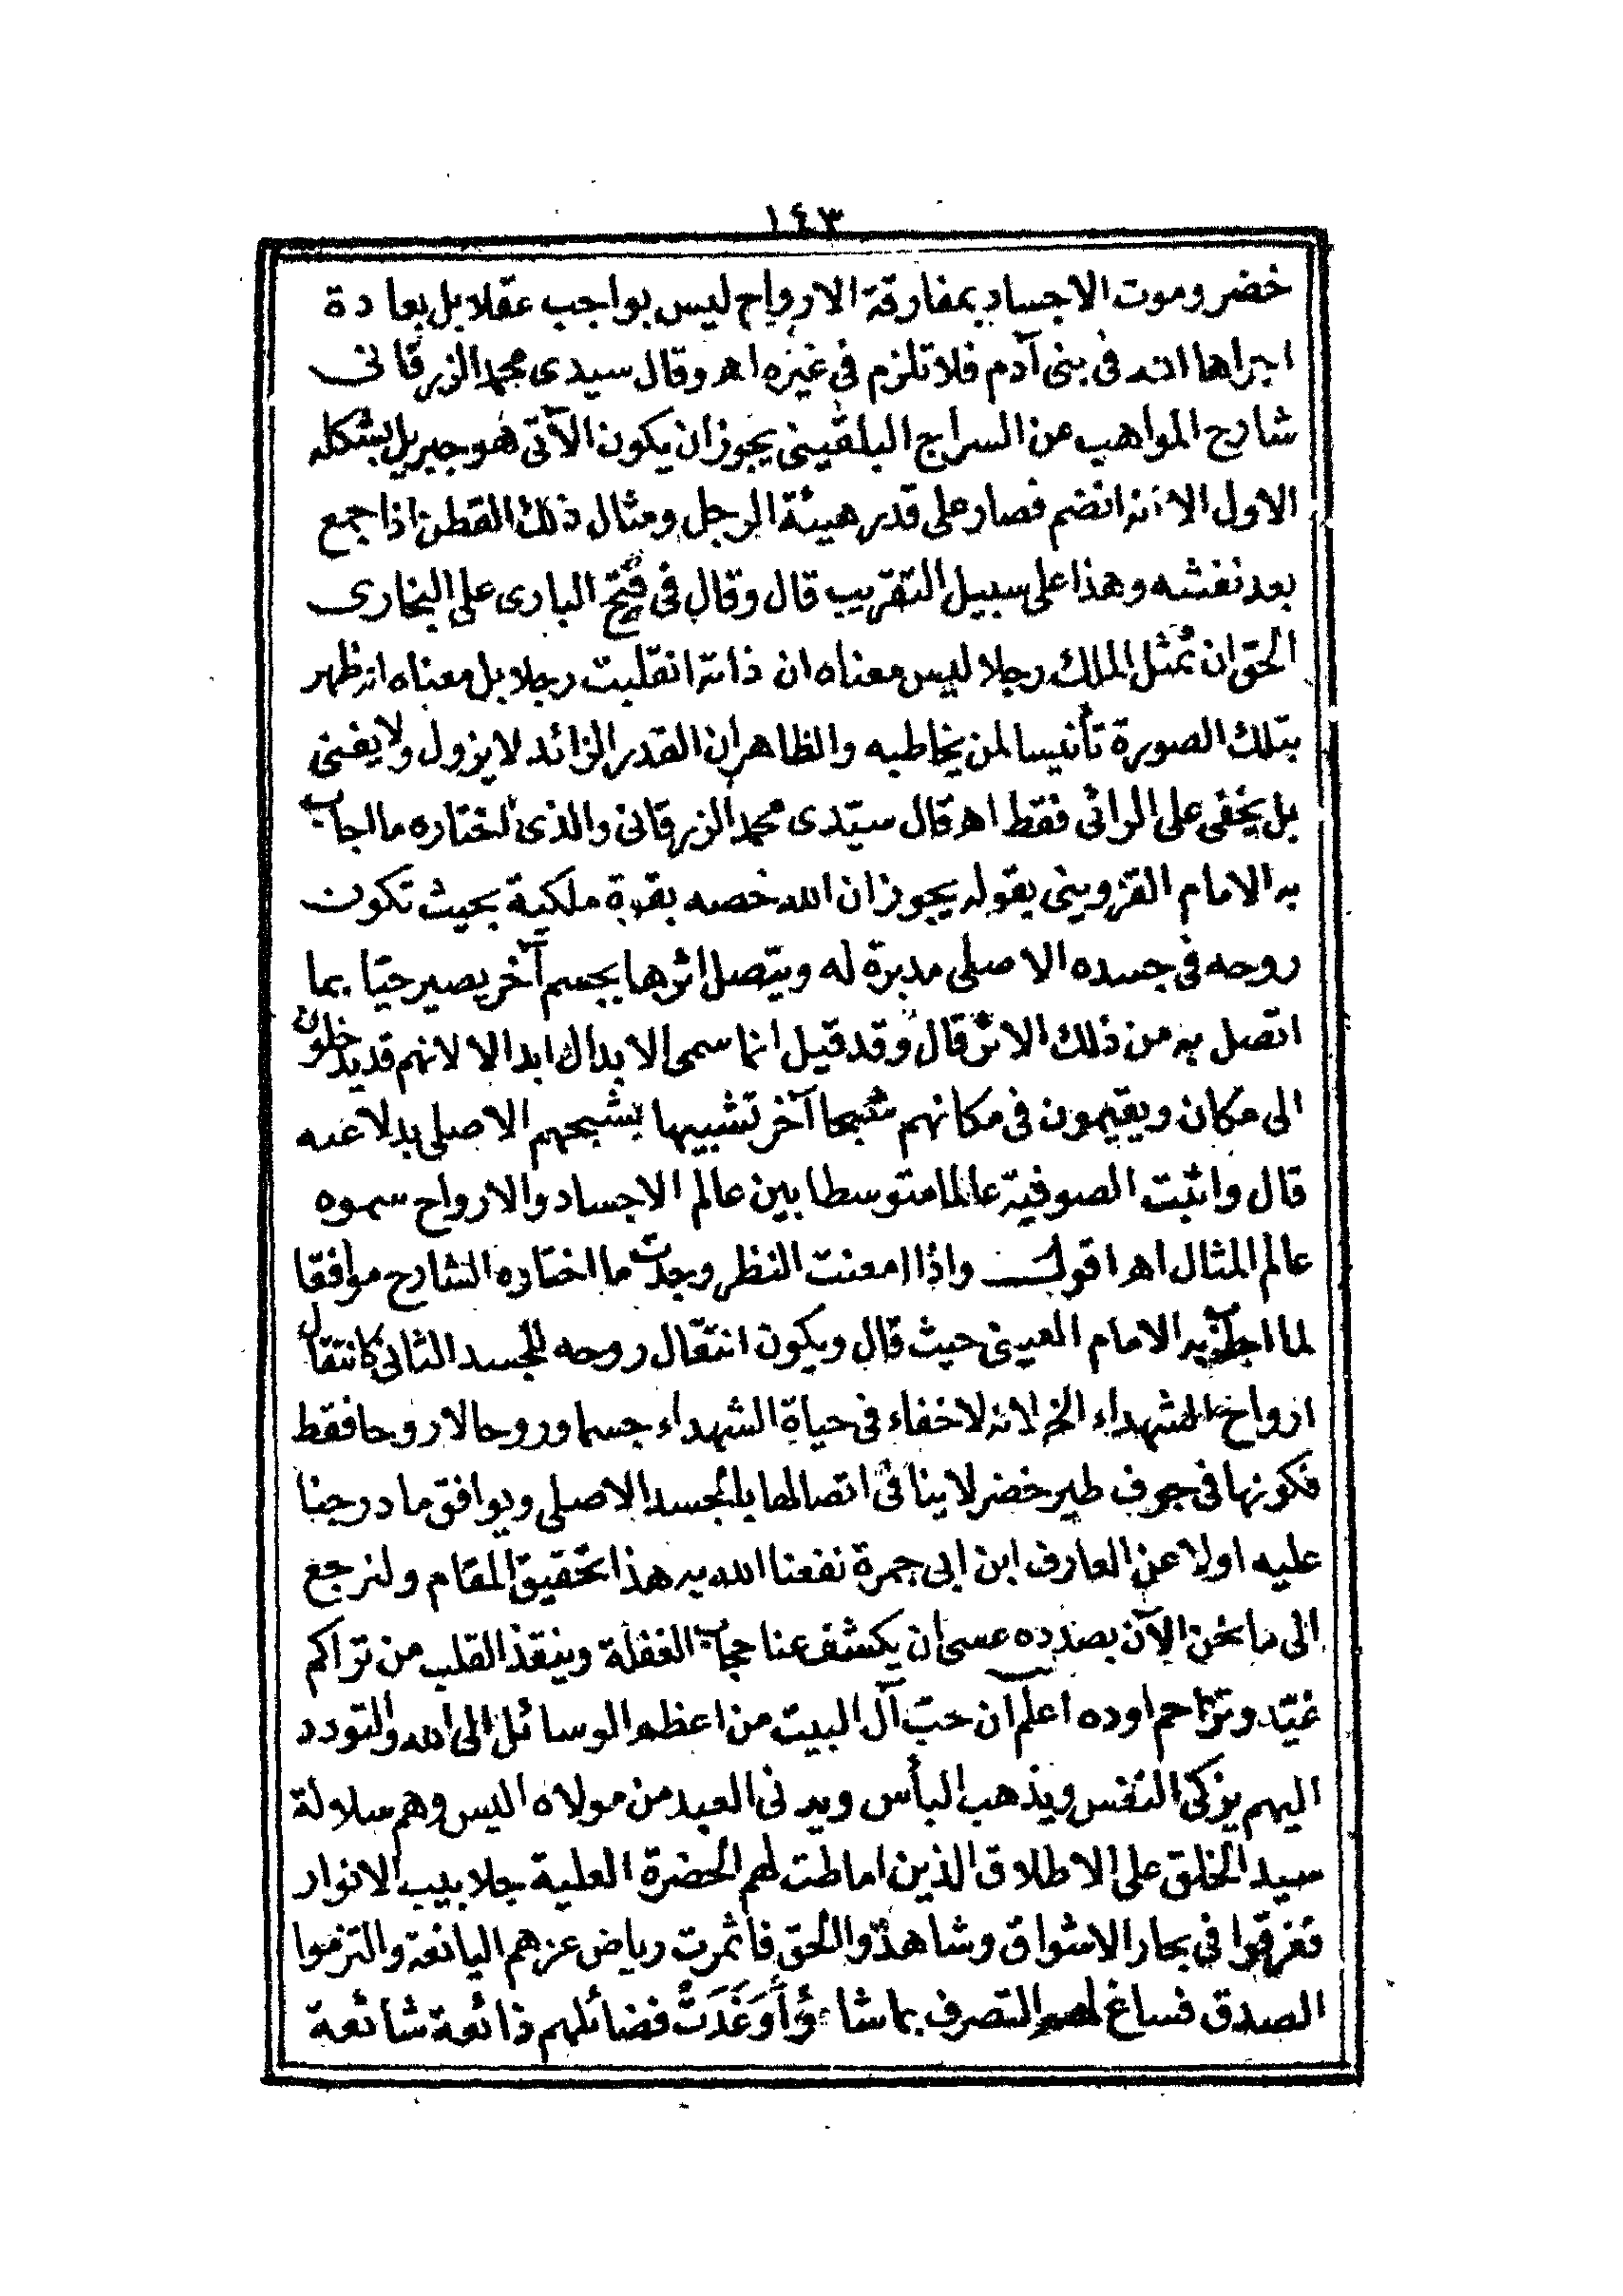 ١٤٣
خضر وموت الاجساد بمفارقة الارواح ليس بواجب عقلا بل بعادة
اجراها الله فى بنى آدم فلا تلزم فى غيره اهـ وقال سيدى محمد الزرقانى
شارح المواهب عن السراج البلقينى يجوز ان يكون الآتى هو جبريل بشكله
الاول الا انه انضم فصار على قدر هيئة الرجل ومثال ذلك القطن اذا جمع
بعد نفشه وهذا على سبيل التقريب قال وقال فى فتح البارى على البخارى
الحق ان تمثل الملك رجلا ليس معناه ان ذاته انقلبت رجلا بل معناه انه ظهر
بتلك الصورة تأنيسا لمن يخاطبه والظاهر ان القدر الزائد لا يزول ولا يفنى
بل يخفى على الرائى فقط اهـ قال سيّدى محمد الزرقانى والذى نختاره ما اجاب
به الامام القزوينى بقوله يجوز ان الله خصه بقوة ملكية بحيث تكون
روحه فى جسده الاصلى مدبرة له ويتصل اثرها بجسم آخر يصير حيّا بما
اتصل به من ذلك الاثر قال وقد قيل انما سمى الابدال ابدالا لانهم قد يدخلون
الى مكان ويقيمون فى مكانهم شبحا آخر تشبيها بشبحهم الاصلى بدلا عنه
قال واثبت الصوفية عالما متوسطا بين عالم الاجساد والارواح سموه
عالم المثال اهـ اقول واذا امعنت النظر وجدت ما اختاره الشارح موافقا
لما اجاب به الامام العينى حيث قال ويكون انتقال روحه للجسد الثانى كانتقال
ارواح الشهداء الخ لانه لا خفاء فى حياة الشهداء جسما وروحا لا روحا فقط
فكونها فى جوف طير خضر لا ينافى اتصالها بالجسد الاصلى ويوافق ما درجنا
عليه اولا عن العارف ابن ابى جمرة نفعنا الله به هذا تحقيق المقام ولنرجع
الى ما نحن الآن بصدده عسى ان يكشف عنا حجاب الغفلة وينقذ القلب من تراكم
غيّه وتزاحم اوده اعلم ان حبّ آل البيت من اعظم الوسائل الى الله والتودد
اليهم يزكى النفس ويذهب البأس ويدنى العبد من مولاه اليس وهم سلالة
سيد الخلق على الاطلاق الذين اماطت لهم الحضرة العلية جلابيب الانوار
فغرقوا فى بحار الاشواق وشاهدوا الحق فاثمرت رياض عزهم اليانعة والتزموا
الصدق فساغ لهم التصرف بما شاءُوأ وَغَدَتْ فضائلهم ذائعة شائعة